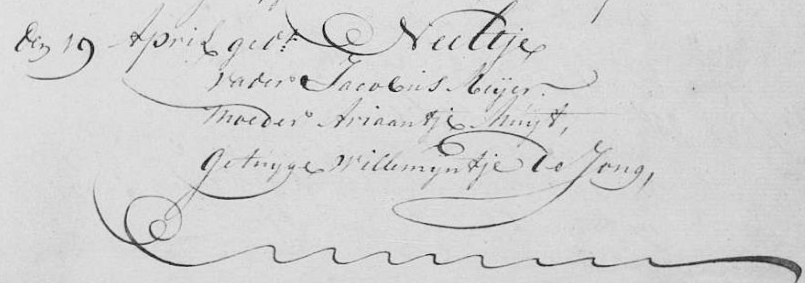 den 19 April ged.t Neeltje
Vader Jacobus Meijer.
Moeder Ariaantje Muijt,
Getuyge Willemijntje De Jong,